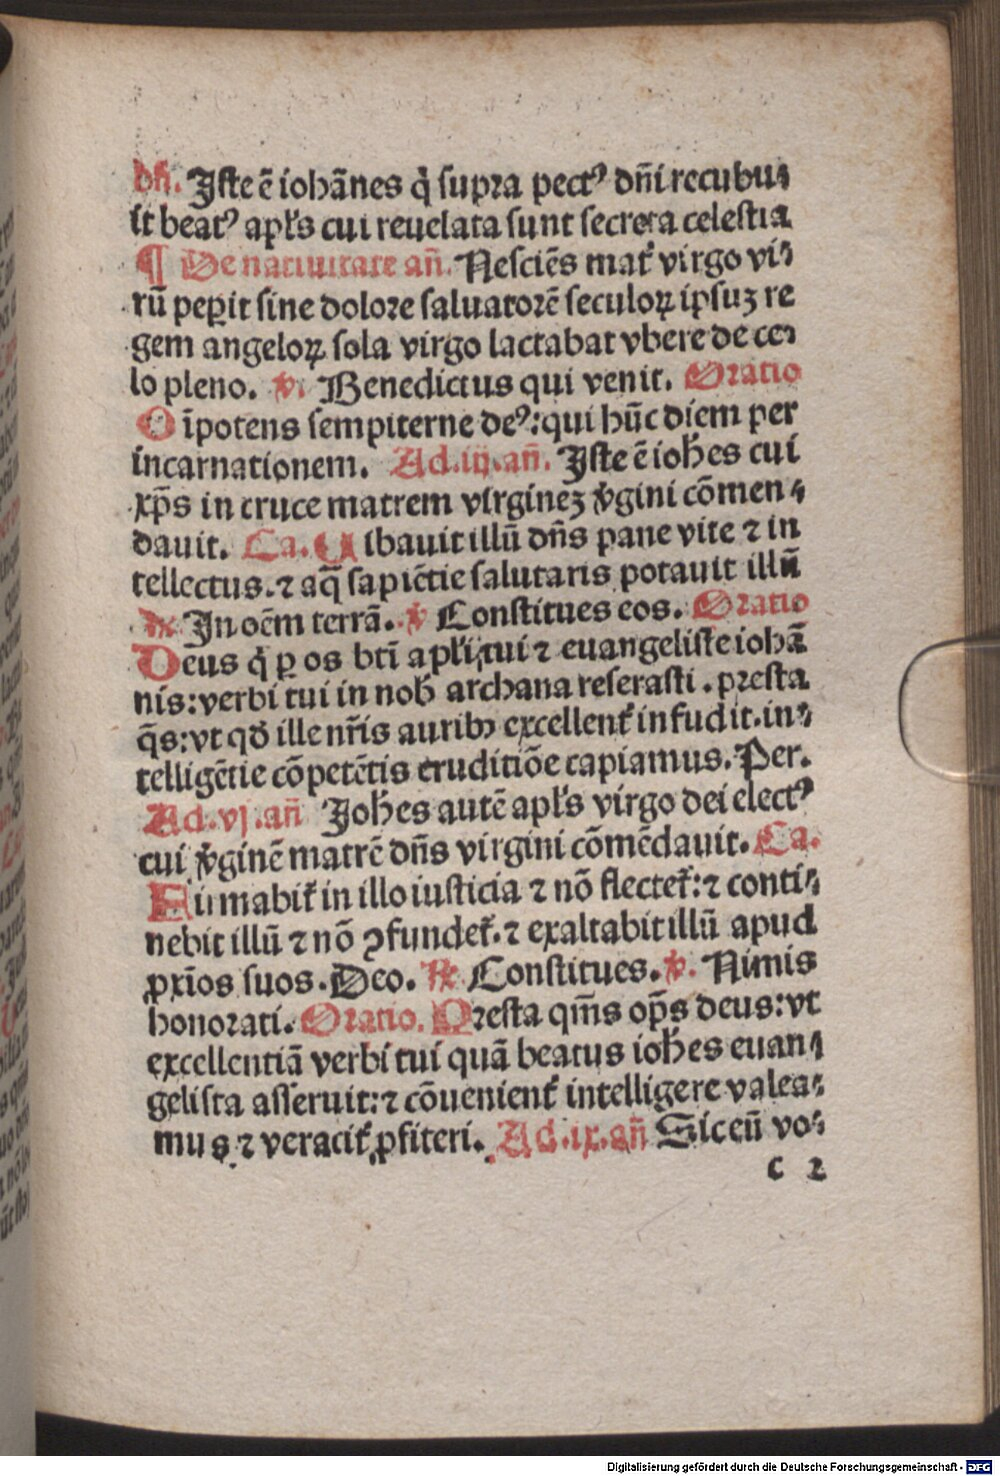 bñ. Iste ē iohānes q̇ supra pectꝰ dñi recubu⸗
it beatꝰ apl's cui reuelata sunt secreta celestia
¶ De natiuitate añ. Nesciēs mat' virgo vi⸗
rū peꝑit sine dolore saluatorē seculoꝝ ipsuꝫ re
gem angeloꝝ sola virgo lactabat vbere de ce⸗
lo pleno. ꝟ. Benedictus qui venit. Oratio
Oīpotens sempiterne deꝰ: qui hūc diem per
incarnationem. Ad.iij.añ. Iste ē ioh̄es cui
xp̄s in cruce matrem virgineꝫ ꝟgini cōmen⸗
dauit. Ca. Cibauit illū dñs pane vite ⁊ in
tellectus. ⁊ aq̄ sapiētie salutaris potauit illū
℞ In oēm terrā. ꝟ Constitues eos. Oratio
Deus q̇ ꝑ os bt̄i apl'i tui ⁊ euangeliste iohā
nis: verbi tui in nob̄ archana reserasti. presta
q̄s: vt qd̄ ille nr̄is auribꝫ excellent' infudit. in⸗
telligētie cōpetētis eruditiōe capiamus. Per.
Ad.vj.añ Ioh̄es autē apl's virgo dei electꝰ
cui ꝟginē matrē dñs virgini cōmēdauit. Ca.
Firmabit' in illo iusticia ⁊ nō flectet': ⁊ conti⸗
nebit illū ⁊ nō ꝯfundet'. ⁊ exaltabit illū apud
ꝓxīos suos. Deo. ℞ Constitues. ꝟ. Nimis
honorati. Oratio. Presta qm̄s op̄s deus: vt
excellentiā verbi tui quā beatus ioh̄es euan⸗
gelista asseruit: ⁊ cōuenient' intelligere valea⸗
mus ⁊ veracit' ꝓfiteri. Ad.ix.añ Sic eū vo⸗
c 2
Digitalisierung gefördert durch die Deutsche Forschungsgemeinschaft - DFG